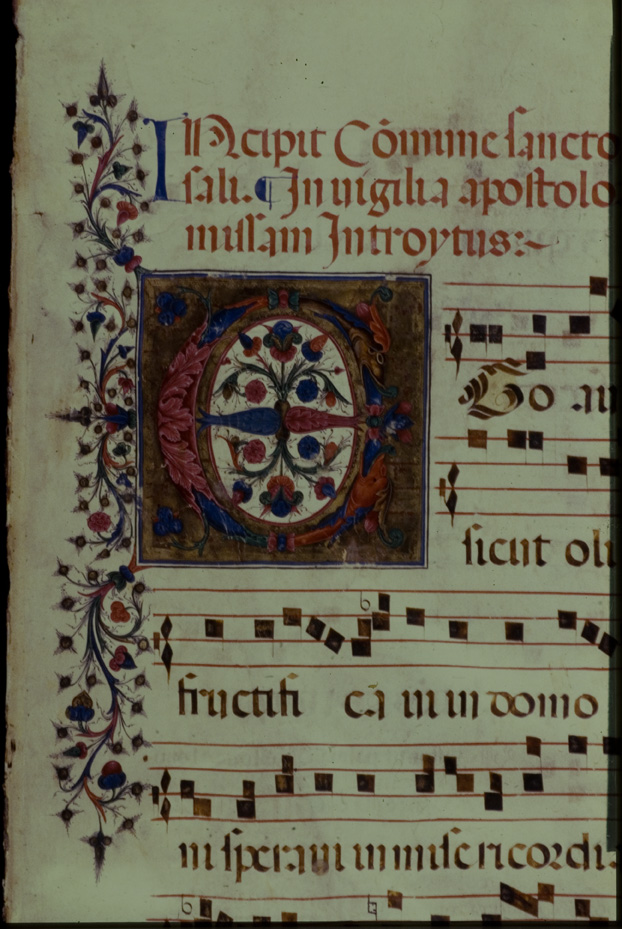 INcipit Cōmune sancto
sali. ¶ In vigilia apostolo
missam Introytus:~
E Go au
sicut oli
fructifi cavi in domo
ni speravi in misericordi